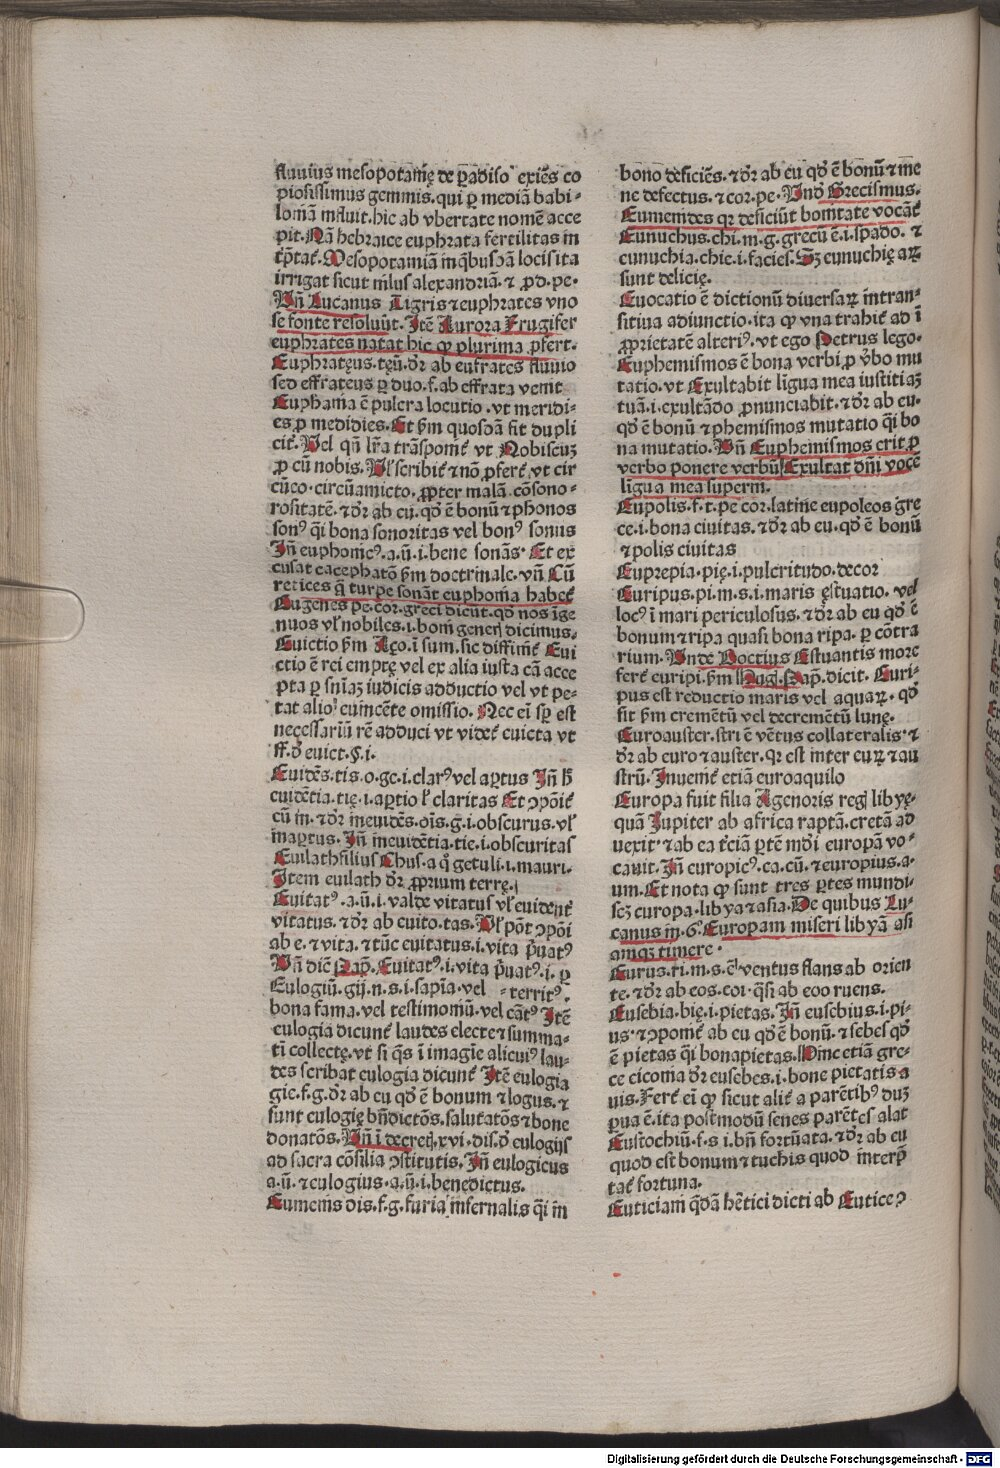 fluuius mesopotamię de ꝑadiso exiẽs co
piosissimus gemmis. qui ꝑ mediã babi-
loniã influit. hic ab vbertate nomẽ acce
pit. Nã hebraice euphrata fertilitas in
tꝑtat᷑. Mesopotamiã in q̃busdã locis ita
irrigat sicut nilus alexandriã. ⁊ ꝓd. pe.
Vñ Lucanus Tigris ⁊ euphrates vno
se fonte resoluũt. Itẽ Aurora Frugifer
euphrates natat hic ꝙ plurima ꝓfert.
Euphratęus. tęũ. dr̃ ab eufrates fluuio
sed effrateus ꝑ duo. f. ab effrata venit
Euphania ẽ pulcra locutio. vt meridi-
es ꝓ medidies. Et ẜm quosdã fit dupli
cit᷑. Vel qñ lr̃a trãsponit᷑ vt Nobiscuꝫ
ꝓ cũ nobis. Vꝉ scribit᷑ ⁊ nõ ꝓfert᷑. vt cir
cũeo. circũamicto. ꝓpter malã cõsono-
rositatẽ. ⁊ dr̃ ab eu. qd̕ ẽ bonũ ⁊ phonos
sonꝰ q̃i bona sonoritas vel bonꝰ sonus
Iñ euphonicꝰ. a. ũ. i. bene sonãs. Et ex
cusat cacephatõ ẜm doctrinale. vñ Cũ
retices q̃ turpe sonãt euphonia habet᷑
Eugenes pe. cor. greci dicũt. qd̕ nos ige
nuos vꝉ nobiles. i. boni generꝭ dicimus.
Euictio ẜm Aço. i sum. sic diffinit᷑ Eui
ctio ẽ rei emptę vel ex alia iusta cã acce
pta ꝑ sñiaꝫ iudicis adductio vel vt pe-
tat alio᷒ euincẽte omissio. Nec ei̇ sꝑ est
necessariũ rẽ adduci vt videt᷑ euicta vt
ff. d̕ euict. §. i.
Euidẽs. tis. o. ge. i. clarꝰ vel aꝑtus Iñ h̕
euidẽtia. tię. i. aꝑtio ꝉ claritas Et ↄponit᷑
cũ in. ⁊ dr̃ ineuidẽs. oĩs. g̃. i. obscurus. vꝉ
inaꝑtus. Iñ ineuidẽtia. tie. i. obscuritas
Euilath filius Chus. a q̊ getuli. i. mauri.
Item euilath dr̃ ꝓprium terrę.
Euitatꝰ. a. ũ. i. valde vitatus vꝉ euident᷑
vitatus. ⁊ dr̃ ab euito. tas. Vꝉ põt ↄponi
ab e. ⁊ vita. ⁊ tũc euitatus. i. vita p̃uatꝰ
Vñ dic̃ Pap̃. Euitatꝰ. i. vita p̃uatꝰ. i. ꝑ
Eulogiũ. gij. n. s. i. sapia. vel territꝰ.
bona fama. vel testimoniũ. vel cãtꝰ Itẽ
eulogia dicunt᷑ laudes electe ⁊ summa-
ti collectę. vt si q̃s i imagĩe alicuiꝰ lau-
des scribat eulogia dicunt᷑ Itẽ eulogia
gie. f. g. dr̃ ab eu qd̕ ẽ bonum ⁊ logus. ⁊
sunt eulogię bñdictõs. salutatõs ⁊ bone
donatõs. Vñ i decreꝭ. xvi. dis. d̕ eulogijs
ad sacra cõsilia ↄstitutis. Iñ eulogicus
a. ũ. ⁊ eulogius. a. ũ. i. benedictus.
Eumenis dis. f. g. furia infernalis q̃i in
bono deficiẽs. ⁊ dr̃ ab eu qd̕ ẽ bonũ ⁊ me
ne defectus. ⁊ cor. pe. Vnd̕ Grecismus.
Eumenides qꝛ deficiũt bonitate vocãt᷑
Eunuchus. chi. m. g. grecũ ẽ. i. spado. ⁊
eunuchia. chie. i. facies. Sꝫ eunuchię aꝝ
sunt delicię.
Euocatio ẽ dictionũ diuersaꝝ intran-
sitiua adiunctio. ita ꝙ vna trahit᷑ ad i
ꝓprietatẽ alteriꝰ. vt ego Petrus lego.
Euphemismos ẽ bona verbi ꝓ v̕bo mu
tatio. vt Exultabit ligua mea iustitiaꝫ
tuã. i. exultãdo ꝓnunciabit. ⁊ dr̃ ab eu.
qd̕ ẽ bonũ ⁊ phemismos mutatio q̃i bo
na mutatio. Vñ Euphemismos erit ꝓ
verbo ponere verbũ Exultat dñi vocẽ
ligua mea superni.
Eupolis. f. t. pe cor. latine eupoleos gre
ce. i. bona ciuitas. ⁊ dr̃ ab eu. qd̕ ẽ bonũ
⁊ polis ciuitas
Euprepia. pię. i. pulcritudo. decor
Euripus. pi. m. s. i. maris ęstuatio. vel
locꝰ i mari periculosus. ⁊ dr̃ ab eu qd̕ ẽ
bonum ⁊ ripa quasi bona ripa. ꝑ cõtra
rium. Vnde Boetius Estuantis more
fert᷑ euripi. ẜm Hug̃. Pap̃. dicit. Euri-
pus est reductio maris vel aquaꝝ. qd̕
fit ẜm cremẽtũ vel decremẽtũ lunę.
Euroauster. stri ẽ vẽtus collateralis. ⁊
dr̃ ab euro ⁊ auster. qꝛ est inter euꝝ ⁊ au
strũ. Inuenit᷑ etiã euroaquilo
Europa fuit filia Agenoris regꝭ libyę.
quã Jupiter ab africa raptã. cretã ad
uexit ⁊ ab ea t᷑ciã ꝑtẽ mũdi europã vo-
cauit. Iñ europicꝰ. ca. cũ. ⁊ europius. a.
um. Et nota ꝙ sunt tres ꝑtes mundi.
scꝫ europa. libya ⁊ asia. De quibus Lu-
canus in. 6. Europam miseri libyã asi
amqꝫ timere.
Eurus. ri. m. s. ẽ ventus flans ab orien
te. ⁊ dr̃ ab eos. eoi. q̃si ab eoo ruens.
Eusebia. bię. i. pietas. Iñ eusebius. i. pi-
us. ⁊ ↄponit᷑ ab eu qd̕ ẽ bonũ. ⁊ sebes qd̕
ẽ pietas q̃i bona pietas. Hinc etiã gre-
ce ciconia dr̃ eusebes. i. bone pietatis a
uis. Fert᷑ ei̇ ꝙ sicut alit᷑ a parẽtibꝰ duꝫ
ꝑua ẽ. ita postmodũ senes parẽtes alat
Eustochiũ. f. s i. bñ fortũata. ⁊ dr̃ ab eu
quod est bonum ⁊ tuchis quod interp̃
tat᷑ fortuna.
Euticiani q̃dã he᷑tici dicti ab Eutice ↄ
Digitalisierung gefördert durch die Deutsche Forschungsgemeinschaft - DFG